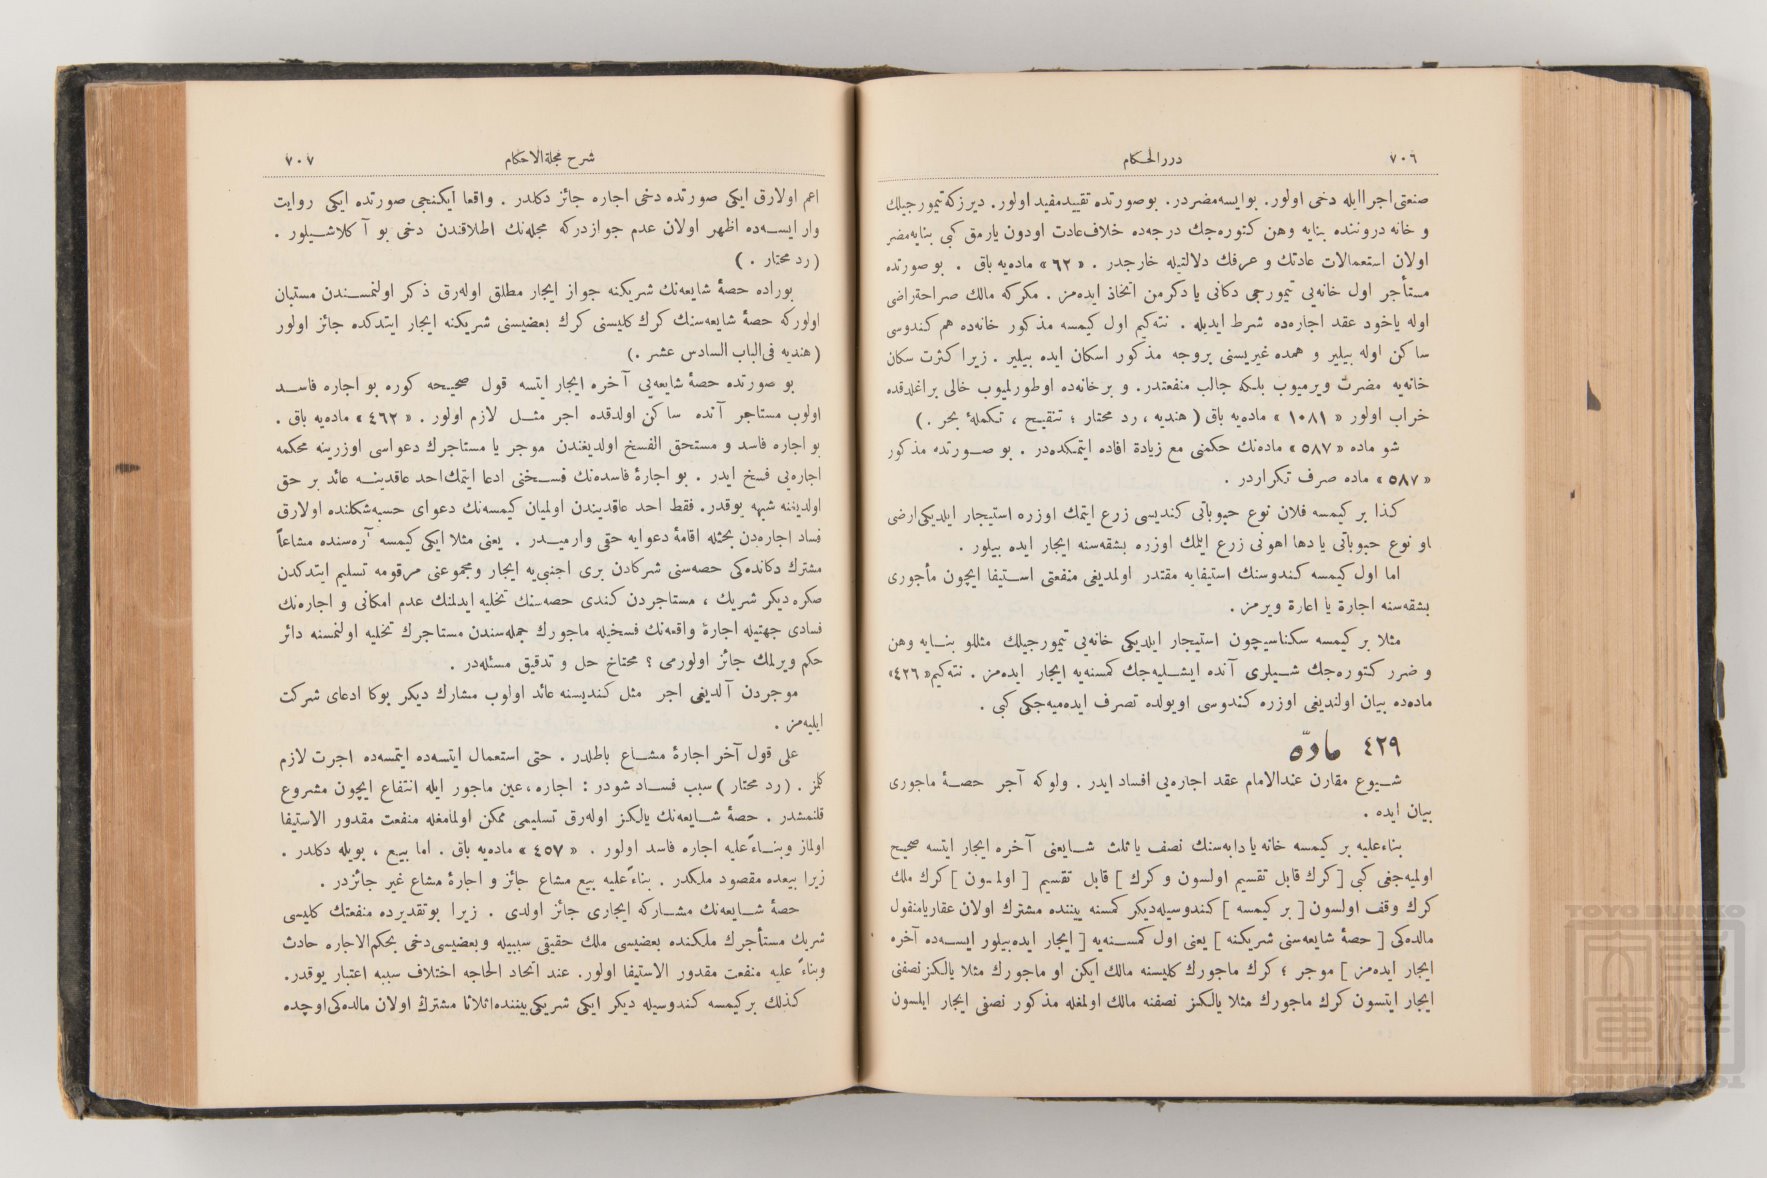 ٧٠٦
دررالحكام
صنعتی اجرا ایله دخی اولور. بوایسه مضردر. بوصورتده تقییدمفید اولور. دیرزكه تیمورجیلك
و خانه دروننده بنایه وهن كتوره‌جك درجه‌ده خلاف‌عادت اودون یارمق كبی بنایه‌مضر
اولان استعمالات عادتك و عرفك دلالتیله خارجدر . « ٦٢ » ماده‌یه باق . بو صورتده
مستأجر اول خانه‌یی تیمورجی دكانی یا دكرمن اتخاذ ایده‌مز . مكركه مالك صراحةراضی
اوله یاخود عقد اجاره‌ده شرط ایدیله . نته‌كیم اول كیمسه مذكور خانه‌ده هم كندوسی
ساكن اوله بیلیر و همده غیریسنی بروجه مذكور اسكان ایده بیلیر . زیرا كثرت سكان
خانه‌یه مضرت ویرمیوب بلكه جالب منفعتدر. و بر خانه‌ده اوطورلمیوب خالی براغلدقده
خراب اولور « ١٠٨١ » ماده‌یه باق ( هندیه ، رد محتار ؛ تنقیح ، تكملۀ بحر . )
شو ماده « ٥٨٧ » ماده‌نك حكمنی مع زیادة افاده ایتمكده‌در . بو صورتده مذكور
« ٥٨٧ » ماده صرف تكراردر .
كذا بر كیمسه فلان نوع حبوباتی كندیسی زرع ایتمك اوزره استیجار ایلدیكی‌ارضی
او نوع حبوباتی یا دها اهونی زرع ایتمك اوزره بشقه‌سنه ایجار ایده بیلور .
اما اول كیمسه كندوسنك استیفایه مقتدر اولمدیغی منفعتی استیفا ایچون مأجوری
بشقه‌سنه اجارة یا اعارة ویرمز .
مثلا بر كیمسه سكناسیچون استیجار ایلدیكی خانه‌یی تیمورجیلك مثللو بنایه وهن
و ضرر كتوره‌جك شیلری آنده ایشلیه‌جك كمسنه‌یه ایجار ایده‌مز . نته‌كیم« ٤٢٦»
ماده‌ده بیان اولندیغی اوزره كندوسی اویولده تصرف ایده‌میه‌جكی كبی .
٤٢٩ مادّه
شیوع مقارن عندالامام عقد اجاره‌یی افساد ایدر . ولوكه آجر حصۀ ماجوری
بیان ایده .
بناءعلیه بر كیمسه خانه یا دابه‌سنك نصف یا ثلث شایعنی آخره ایجار ایتسه صحیح
اولمیه‌جغی كبی [ كرك قابل تقسیم اولسون و كرك ] قابل تقسیم [ اولمسون ] كرك ملك
كرك وقف اولسون [ بر كیمسه ] كندوسیله‌دیكر كمسنه بیننده مشترك اولان عقاریامنقول
مالده‌كی [ حصۀ شایعه‌سنی شریكنه ] یعنی اول كمسنه‌یه [ ایجار ایده‌بیلور ایسه‌ده آخره
ایجار ایده‌مز ] موجر ؛ كرك ماجورك كلیسنه مالك ایكن او ماجورك مثلا یالكز نصفنی
ایجار ایتسون كرك ماجورك مثلا یالكز نصفنه مالك اولمغله مذكور نصفی ایجار ایلسون
شرح مجلةالاحكام
٧٠٧
اعم اولارق ایكی صورتده دخی اجاره جائز دكلدر . واقعا ایكنجی صورتده ایكی روایت
وار ایسه‌ده اظهر اولان عدم جوازدركه مجله‌نك اطلاقندن دخی بو آكلاشیلور .
( رد محتار . )
بوراده حصۀ شایعه‌نك شریكنه جواز ایجار مطلق اوله‌رق ذكر اولنمسندن مستبان
اولوركه حصۀ شایعه‌سنك كرك كلیسنی كرك بعضیسنی شریكنه ایجار ایتدكده جائز اولور
( هندیه فی‌الباب السادس عشر .)
بو صورتده حصۀ شایعه‌یی آخره ایجار ایتسه قول صحیحه كوره بو اجاره فاسد
اولوب مستاجر آنده ساكن اولدقده اجر مثل لازم اولور . « ٤٦٢ » ماده‌یه باق .
بو اجاره فاسد و مستحق الفسخ اولدیغندن موجر یا مستاجرك دعواسی اوزرینه محكمه
اجاره‌یی فسخ ایدر . بو اجارۀ فاسده‌نك فسخنی ادعا ایتمك احد عاقدینه عائد بر حق
اولدیغنه شبهه یوقدر. فقط احد عاقدیندن اولمیان كیمسه‌نك دعوای حسبه‌شكلنده اولارق
فساد اجاره‌دن بحثله اقامۀ دعوایه حقی وارمیدر . یعنی مثلا ایكی كیمسه آره‌سنده مشاعاً
مشترك دكانده‌كی حصه‌سنی شركادن بری اجنبی‌یه ایجار ومجموعنی مرقومه تسلیم ایتدكدن
صكره دیكر شریك ، مستاجردن كندی حصه‌سنك تخلیه ایدلمك عدم امكانی و اجاره‌نك
فسادی جهتیله اجارۀ واقعه‌نك فسخیله ماجورك جمله‌سندن مستاجرك تخلیه اولنمسنه دائر
حكم ویرلمك جائز اولورمی ؟ محتاج حل و تدقیق مسئله‌در .
موجردن آلدیغی اجر مثل كندیسنه عائد اولوب مشارك دیكر بوكا ادعای شركت
ایلیه‌مز .
علی قول آخر اجارۀ مشاع باطلدر . حتی استعمال ایتسه‌ده ایتمسه‌ده اجرت لازم
كلمز . ( رد محتار ) سبب فساد شودر : اجاره ، عین ماجور ایله انتفاع ایچون مشروع
قلنمشدر . حصۀ شایعه‌نك یالكز اوله‌رق تسلیمی ممكن اولمامغله منفعت مقدور الاستیفا
اولماز وبناءً علیه اجاره فاسد اولور . « ٤٥٧ » ماده‌یه باق . اما بیع ، بویله دكلدر .
زیرا بیعده مقصود ملكدر . بناءً علیه بیع مشاع جائز و اجارۀ مشاع غیر جائزدر .
حصۀ شایعه‌نك مشاركه ایجاری جائز اولدی . زیرا بوتقدیرده منفعتك كلیسی
شریك مستأجرك ملكنده بعضیسی ملك حقیقی سببیله وبعضیسی‌دخی بحكم‌الاجاره حادث
وبناءً علیه منفعت مقدور الاستیفا اولور. عند اتحاد الحاجه اختلاف سببه اعتبار یوقدر.
كذلك بر كیمسه كندوسیله دیكر ایكی شریكی‌بیننده‌اثلاثا مشترك اولان مالده‌كی‌اوچده
TOYO BUNKO